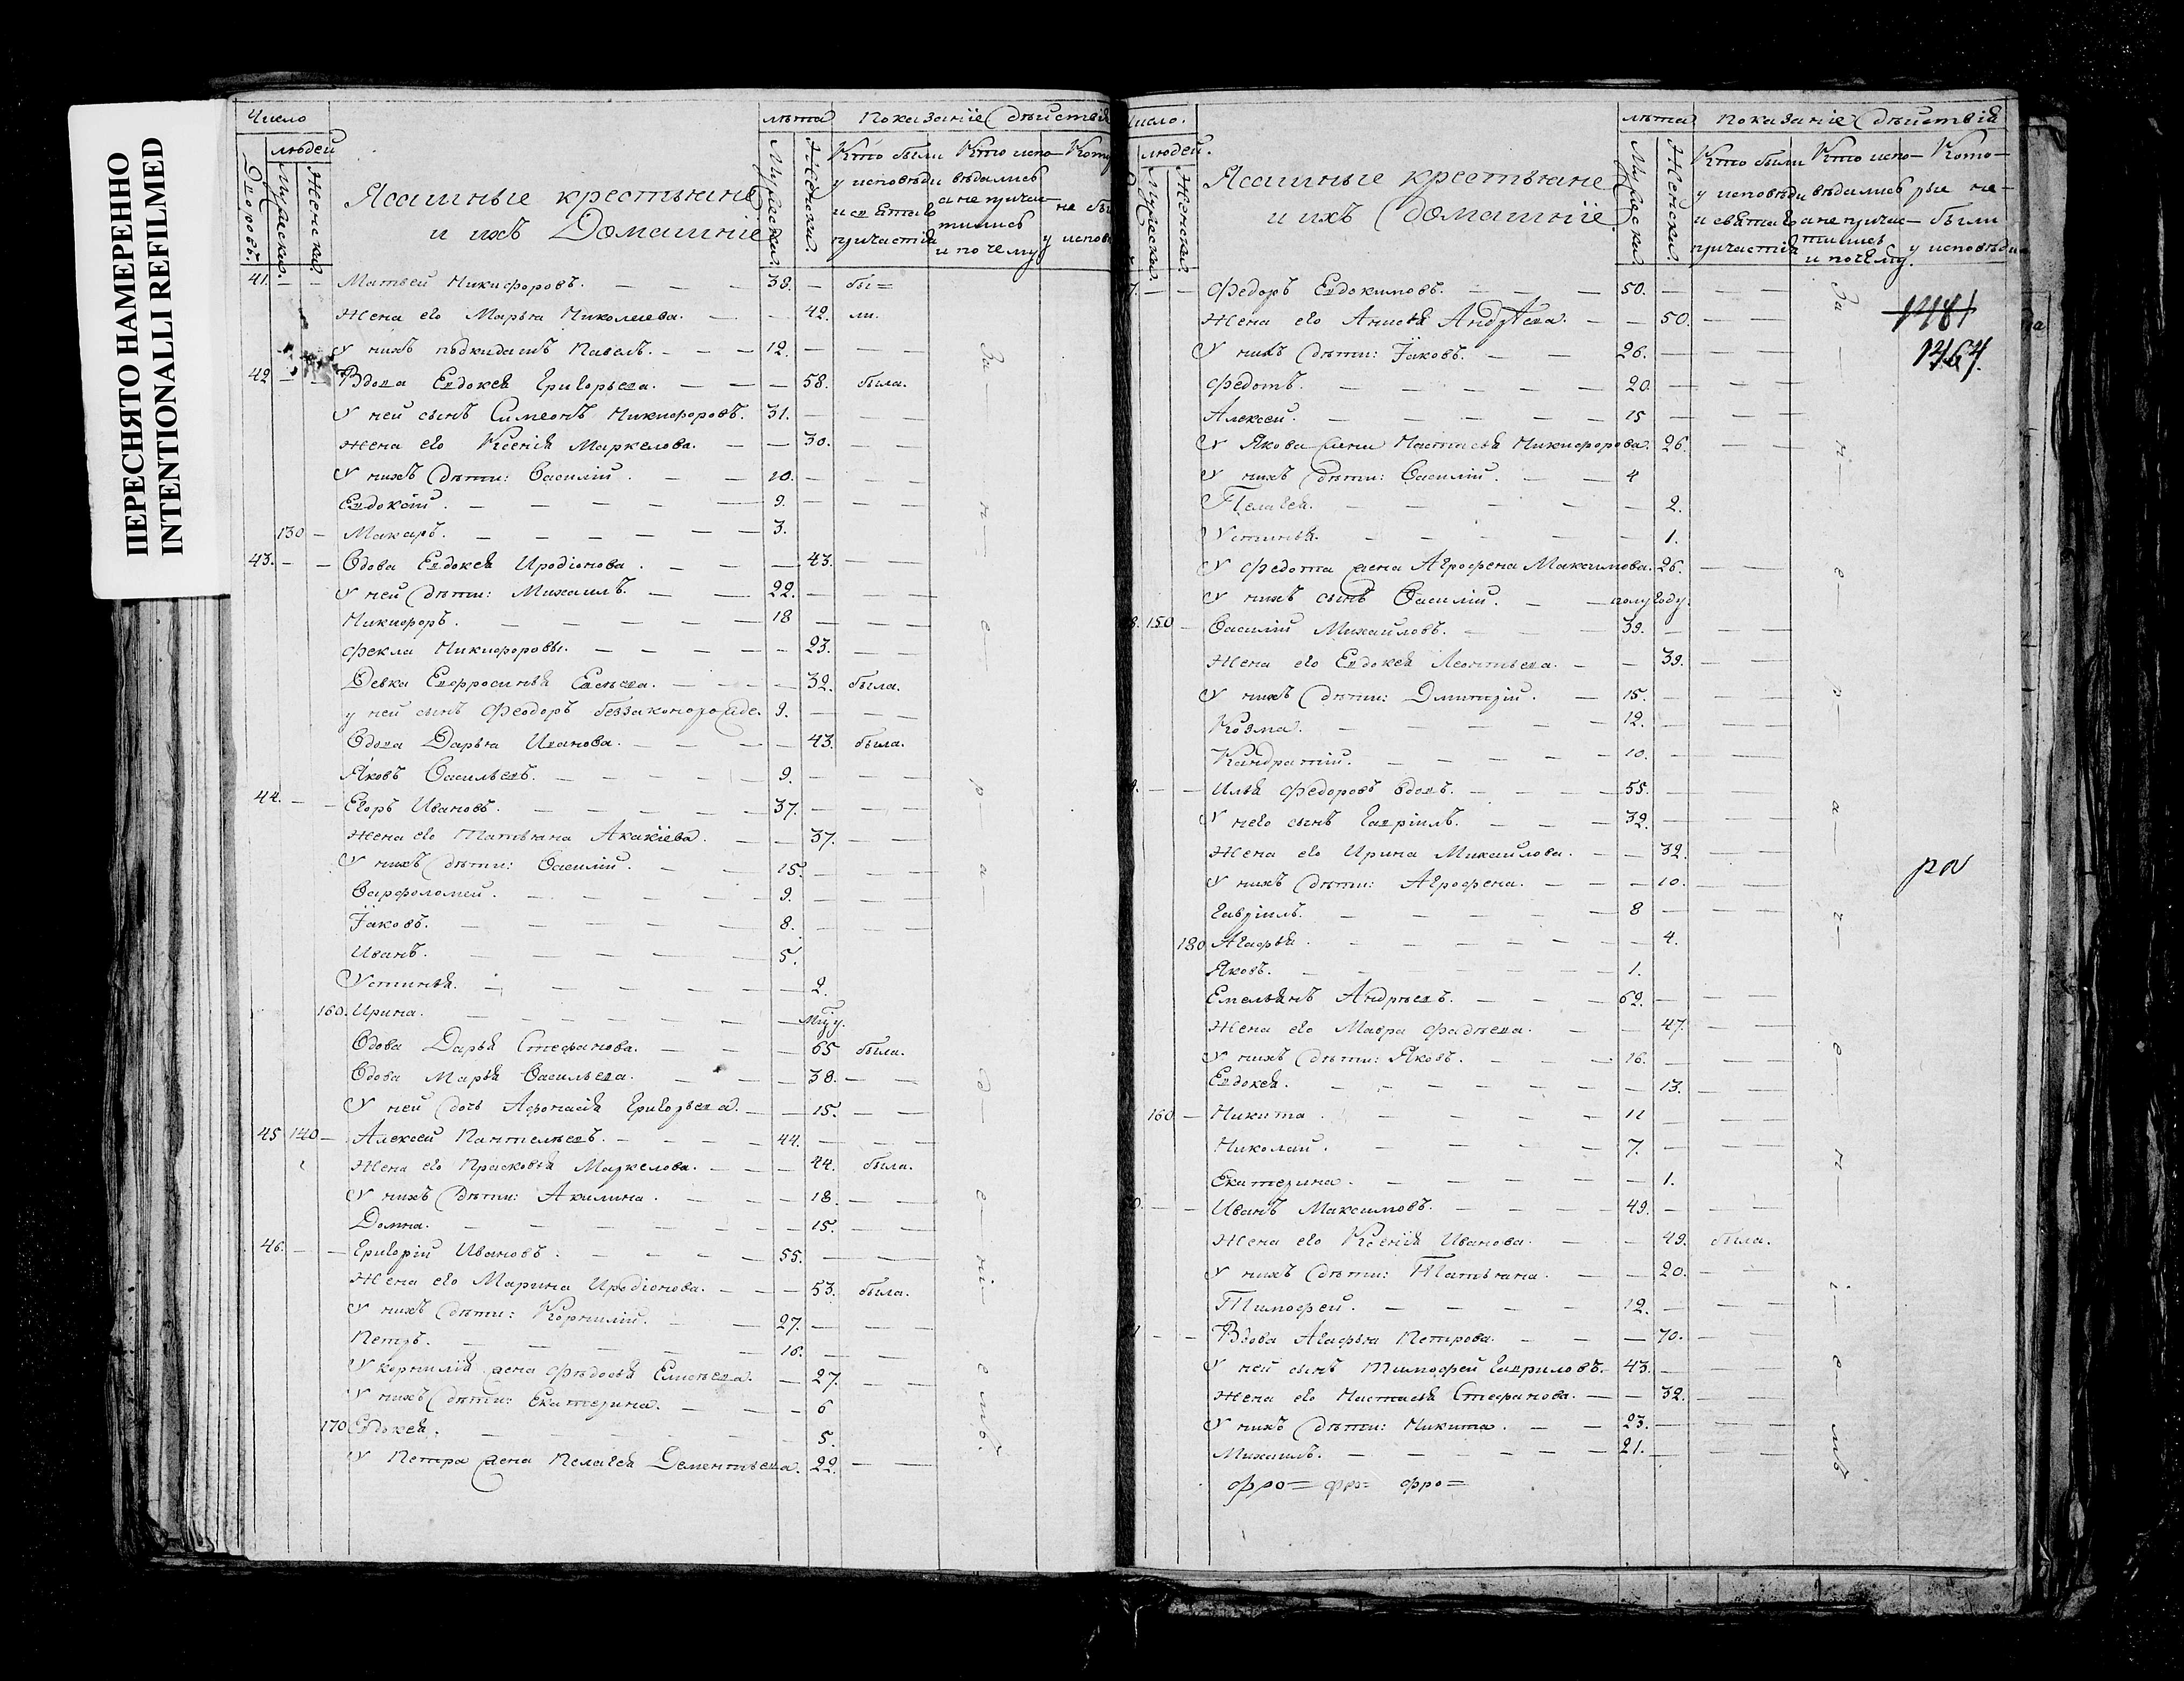 ПЕРЕСНЯТО НАМЕРЕННО
INTENTIONALLI REFILMED
Число
людей
Дворовъ.
Мужеска.
Женска.
Ясашные крестьяне
и ихъ Домашніе
лѣта
Мужеска.
Женска.
Показаніе дѣйствія
Кто были
у исповѣди
и святаго
причастія
Кто испо-
вѣдались
а не прича-
тились
и по чему
41. — — Матвей Никифоровъ. — — — 39. — бы=
Жена его Марья Николаева. — — 42. ли.
У нихъ подкидышъ Павелъ. — — — 12. — — —
42 — — Вдова Евдокея Григорьева. — — — 58. была.
У ней сынъ Симеонъ Никифоровъ. 31. — — —
Жена его Ксенія Маркелова. — — 30. — —
У нихъ дѣти: Василій. — — 10. — — —
Евдокій. — — — — — 9. — — —
130 — Макаръ. — — — — — — 3.
43. — — Вдова Евдокея Иродіонова. — — — 43. — —
У ней дѣти: Михаилъ. — — 22. — — —
Никифоръ. — — — — — 18 — — —
Фекла Никифоровы. — — — — — 23. — —
Девка Евфросинья Евсѣева. — — — 32. была.
у ней сынъ Феодоръ беззаконорожде. 9. — — —
Вдова Дарья Иванова. — — — — 43. была.
Яковъ Васильевъ. — — — — 9. — — —
44. — — Егоръ Ивановъ. — — — — 37. — — —
Жена его Татьяна Акакіева. — — 37. — —
У нихъ дѣти: Василій. — — 15. — — —
Варфоломей. — — — — — 9. — — —
Іаковъ. — — — — — 8. — — —
Иванъ. — — — — — 5.
Устинья. — — — — — — 2.
160. Ирина. — — — — — —
Вдова Дарья Стефанова. — — — 65 была.
Вдова Марья Васильева. — — — 38. — —
У ней дочь Афонасія Григорьева. — — 15. — —
45 140 — Алексей Пантелѣевъ. — — — — 44. — — —
Жена его Прасковья Маркелова. — — — 44. была.
У нихъ дѣти: Акилина. — — — — 18. — —
Домна. — — — — — — — 15. — —
46. — — Григорій Ивановъ. — — — — 55. — — —
Жена его Марина Иродіонова. — — — 53. была.
У нихъ дѣти: Корнилій. — — 27. — — —
Петръ. — — — — — — 16. — — —
У Корнилія жена Фѣдосья Елисѣева. — 27. — —
У нихъ дѣти: Екатерина. — — — 6
170 Евдокея. — — — — — — 5.
У Петра жена Пелагея Дементьева. 22. — —
За — н — е — р — а — д — е — ні — е мъ.
Число.
людей.
Мужеска.
Женска.
Ясашные крестьяне
и ихъ домашніе.
лѣта
Мужеска.
Женска.
Показаніе дѣйствія
Кто были
у исповѣди
и святаго
причастія
Кто испо-
вѣдались
а не прича-
тились
и почему.
Кото-
рые не-
были
у исповѣди
1464.
7. — — Федоръ Евдокимовъ. — — — 50. — — —
Жена его Анисья Андрѣева. — — 50. — —
У нихъ дѣти: Іаковъ. — — 26. — — —
Федотъ. — — — — — 20. — — —
Алексей. — — — — — 15 — — —
У Якова жена Настасья Никифорова. 26. — —
У нихъ дѣти: Василій. — — 4
Пелагея. — — — — — 2.
Устинья. — — — — — 1.
У Федота жена Агрофена Максимова. 26. — —
У нихъ сынъ Василій. — — полугоду.
8. 150 — Василій Михайловъ. — — — 39. — — —
Жена его Евдокея Леонтьева. — — 39. — —
У нихъ дѣти: Дмитрій. — 15. — — —
Козма. — — — — — 12. — — —
Кандратій. — — — — — 10. — — —
9. — — Илья Федоровъ вдовъ. — — — 55. — — —
У него сынъ Гавріилъ. — — — 32. — — —
Жена его Ирина Михайлова. — — 32. — —
У нихъ дѣти: Агрофена. — — — 10. — —
Гавріилъ. — — — — — 8 — — —
180 Агафья. — — — — — — 4.
Яковъ. — — — — — 1.
Емельянъ Андрѣевъ. — — — 62. — — —
Жена его Мавра Фадѣева. — — 47. — —
У нихъ дѣти: Яковъ. — — — 16. — — —
Евдокея. — — — — — — 13. — —
160 — Никита. — — — — 11 — — —
Николай. — — — — 7. — — —
Екатерина. — — — — — 1.
0. — — Иванъ Максимовъ. — — — 49. — — —
Жена его Ксенія Иванова. — — 49. была.
У нихъ дѣти: Татьяна. — — 20. — —
Тимофей. — — — — 12. — — —
— — Вдова Агафья Петрова. — — — 70. — —
У ней сынъ Тимофей Гавриловъ. 43. — — —
Жена его Настасья Стефанова. — — 32. — —
У нихъ дѣти: Никита. — — 23. — — —
Михаилъ. — — — — — 21. — — —
фро= фр= фро=
За — н — е — р — а — ч — е — н — і — е — мъ
ра